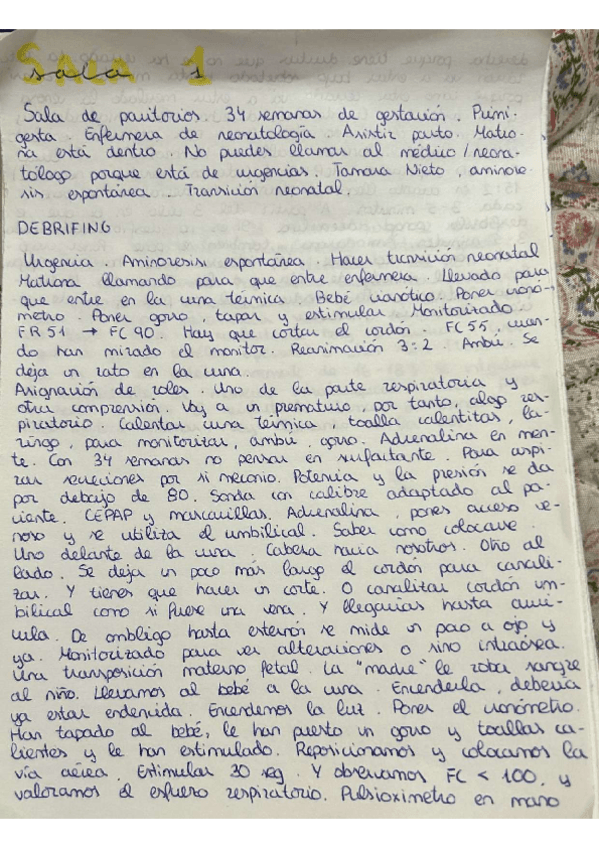 SALA 1
sala 1
Sala de paritorios. 34 semanas de gestación. Primi-
gesta. Enfermera de neonatología. Asistir parto. Matro-
na está dentro. No puedes llamar al médico/neona-
tólogo porque está de urgencias. Tamara Nieto, amniore-
sis espontánea. Transición neonatal.
DEBRIFING
Urgencia. Amnioresis espontánea. Hacer transición neonatal
Matrona llamando para que entre enfermera. Llevado para
que entre en la cuna térmica. Bebé cianótico. Poner cronó-
metro. Poner gorro, tapar y estimular. Monitorizado.
FR 51 → FC 90. Hay que cortar el cordón. FC 55, cuan-
do han mirado el monitor. Reanimación 3:2. Ambú. Se
deja un rato en la cuna.
Asignación de roles. Uno de la parte respiratoria y
otra compresión. Voy a un prematuro, por tanto, algo res-
piratorio. Calentar cuna térmica, toalla calentitas, la-
ringo, para monitorizar, ambú, gorro. Adrenalina en men-
te. Con 34 semanas no pensar en surfactante. Para aspi-
rar secreciones por si meconio. Potencia y la presión se da
por debajo de 80. Sonda con calibre adaptado al pa-
ciente. CEPAP y mascarillas. Adrenalina, pones acceso ve-
noso y se utiliza el umbilical. Saber como colocarse.
Uno delante de la cuna. Cabeza hacia nosotros. Otro al
lado. Se deja un poco más largo el cordón para canali-
zar. Y tienes que hacer un corte. O canalizar cordón um-
bilical como si fuese una vena. Y llegarías hasta aurí-
cula. De ombligo hasta esternón se mide un poco a ojo y
ya. Monitorizado para ver alteraciones o sino intraósea.
Una transposición materno fetal. La "madre" le roba sangre
al niño. Llevamos al bebé a la cuna. Encenderla, debería
ya estar encendida. Encendemos la luz. Poner el cronómetro.
Han tapado al bebé, le han puesto un gorro y toallas ca-
lientes y le han estimulado. Reposicionamos y colocamos la
vía aérea. Estimular 30 seg. Y observamos FC < 100, y
valoramos el esfuerzo respiratorio. Pulsioximetro en mano